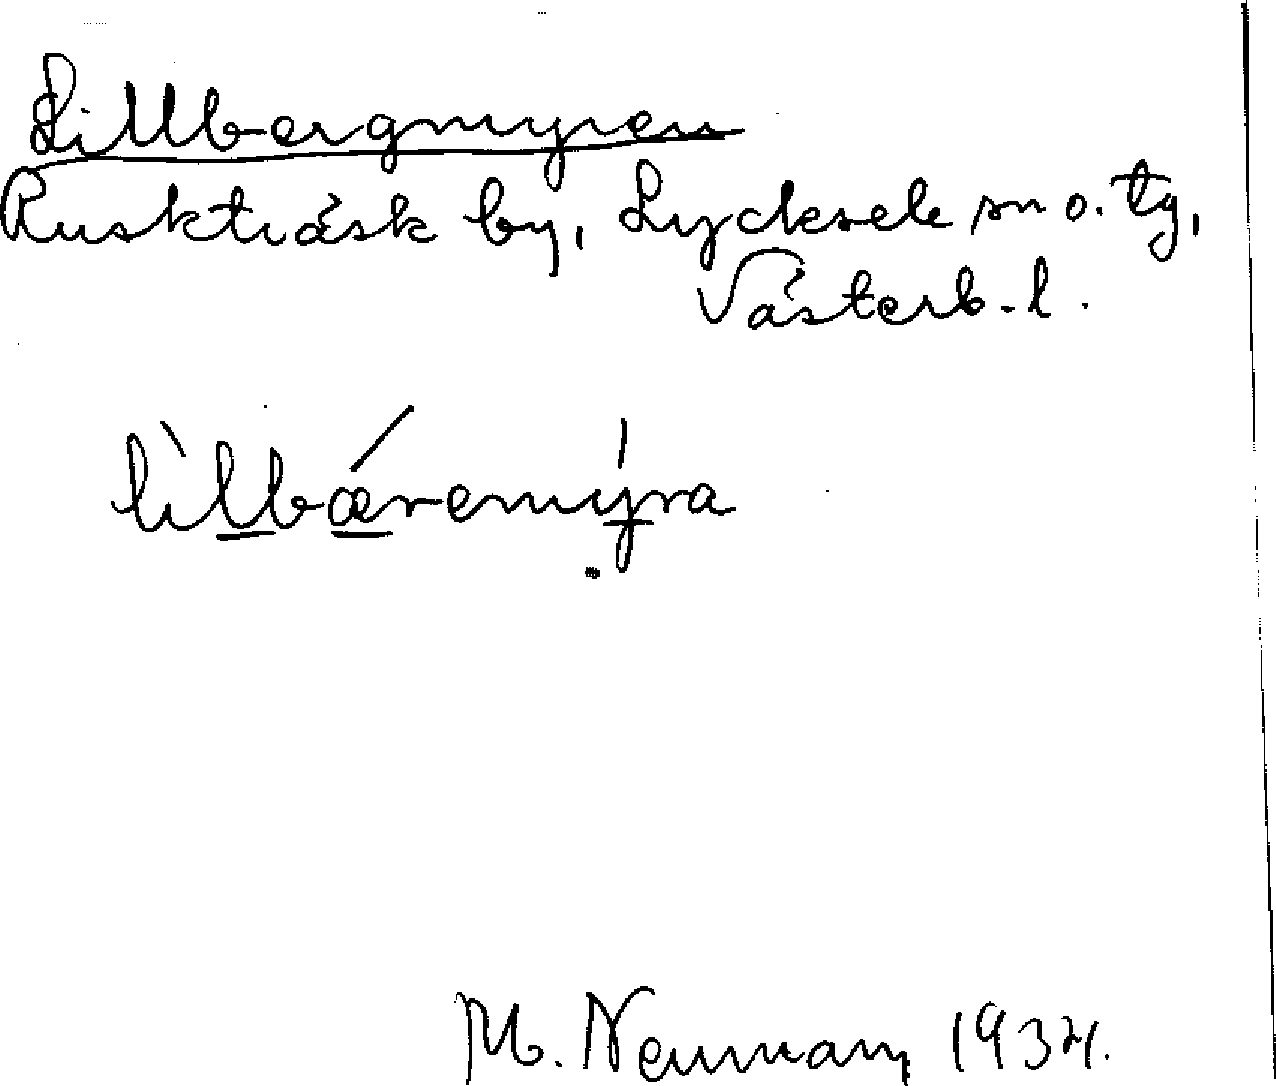 Lillbergmyren
Ruskträsk by, Lycksele sn o. tg,
Västerb. l.
lìllbǽremýra
M. Neuman, 1934.